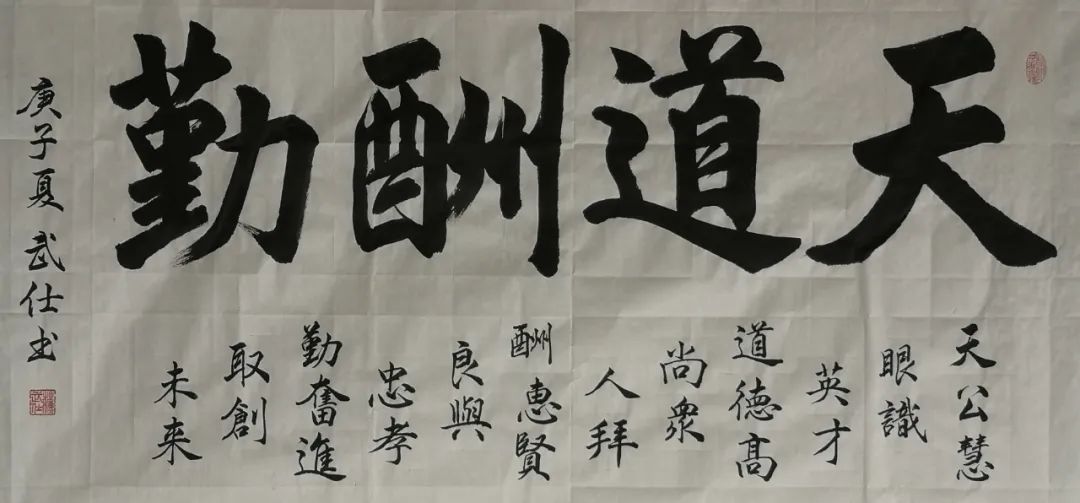 天道酬勤
天公慧
眼識
英才
道德高
尚衆
人拜
酬惠賢
良與
忠孝
勤奮進
取創
未来
庚子夏 武仕书